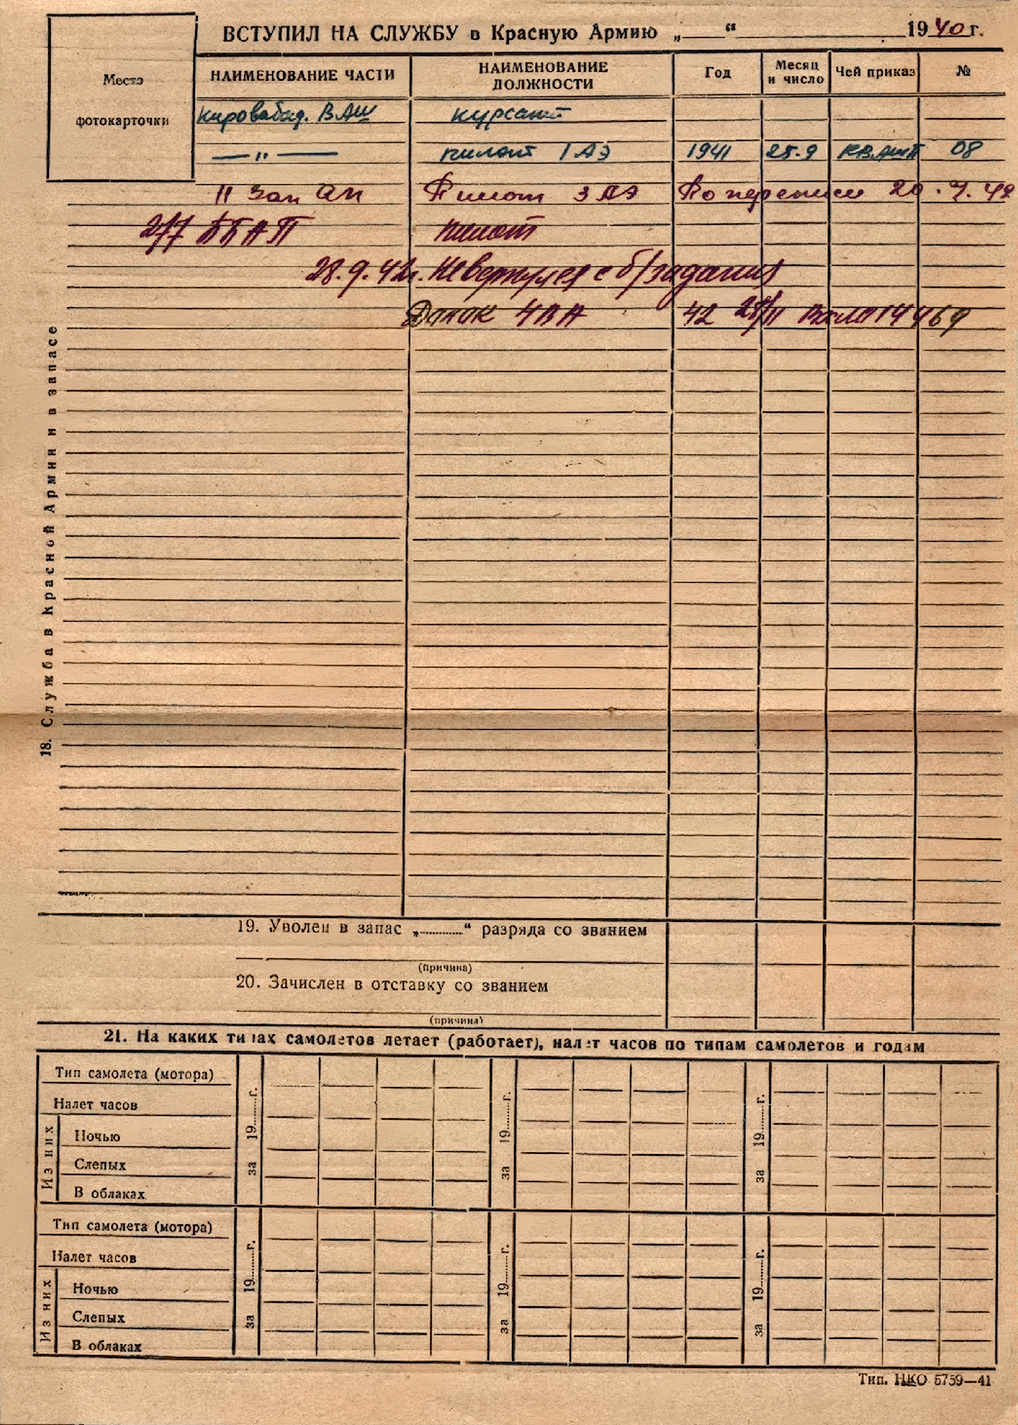 ВСТУПИЛ НА СЛУЖБУ в Красную Армию „ “ 1940 г.
Место
фотокарточки
НАИМЕНОВАНИЕ ЧАСТИ НАИМЕНОВАНИЕ ДОЛЖНОСТИ Год Месяц и число Чей приказ №
Кировабад. ВАШ курсант
— " — пилот 1 АЭ 1941 25.9 КВАШП 08
11 Зап АП Пилот 3 АЭ По переписи 20.7.42
277 ББАП пилот
28.9.42г. Не вернулся с б/задания
42 469
18. Служба в Красной Армии и в запасе
19. Уволен в запас „..........“ разряда со званием
(причина)
20. Зачислен в отставку со званием
(причина)
21. На каких типах самолетов летает (работает), налет часов по типам самолетов и годам
Тип самолета (мотора) за 19......г. за 19......г. за 19......г.
Налет часов
Из них
Ночью
Слепых
В облаках
Тип самолета (мотора) за 19......г. за 19......г. за 19......г.
Налет часов
Из них
Ночью
Слепых
В облаках
Тип. НКО 5759—41